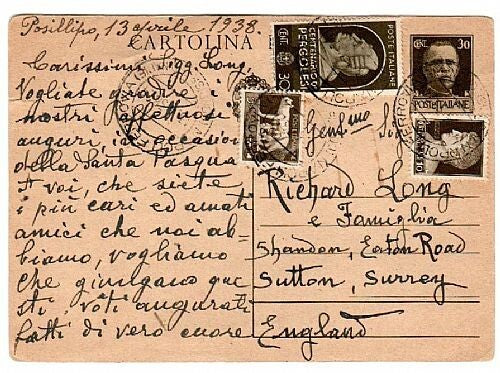 Posillipo, 13 aprile 1938.
CARTOLINA
Carissimi Sigg. Long,
Vogliate gradire i
nostri affettuosi
auguri, in occasione
della Santa Pasqua
A voi, che siete
i più cari ed amati
amici che noi ab-
biamo, vogliamo
che giungano que
sti voti augurali
fatti di vero cuore
CENT. 30
CENTENARIO
PERGOLESI
POSTE ITALIANE
CENT. 30
POSTE ITALIANE
Gent.mo Sig.
Richard Long
e Famiglia
Shandon, Eaton Road
Sutton, Surrey
England